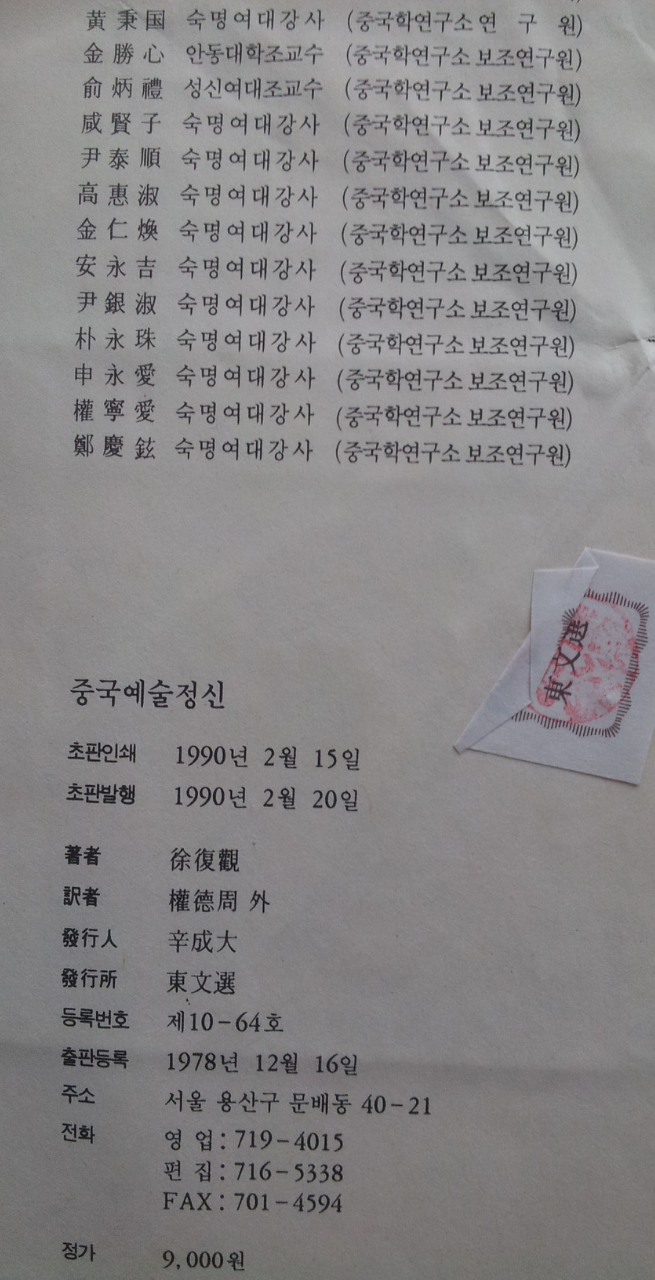 黃秉国 숙명여대강사 (중국학연구소 연 구 원)
金勝心 안동대학조교수 (중국학연구소 보조연구원)
俞炳禮 성신여대조교수 (중국학연구소 보조연구원)
咸賢子 숙명여대강사 (중국학연구소 보조연구원)
尹泰順 숙명여대강사 (중국학연구소 보조연구원)
高惠淑 숙명여대강사 (중국학연구소 보조연구원)
金仁煥 숙명여대강사 (중국학연구소 보조연구원)
安永吉 숙명여대강사 (중국학연구소 보조연구원)
尹銀淑 숙명여대강사 (중국학연구소 보조연구원)
朴永珠 숙명여대강사 (중국학연구소 보조연구원)
申永愛 숙명여대강사 (중국학연구소 보조연구원)
權寧愛 숙명여대강사 (중국학연구소 보조연구원)
鄭慶鉉 숙명여대강사 (중국학연구소 보조연구원)
東文選
중국예술정신
초판인쇄 1990년 2월 15일
초판발행 1990년 2월 20일
著者 徐復觀
訳者 權德周 外
發行人 辛成大
發行所 東文選
등록번호 제10-64호
출판등록 1978년 12월 16일
주소 서울 용산구 문배동 40-21
전화 영 업 : 719-4015
편 집 : 716-5338
FAX : 701-4594
정가 9,000원